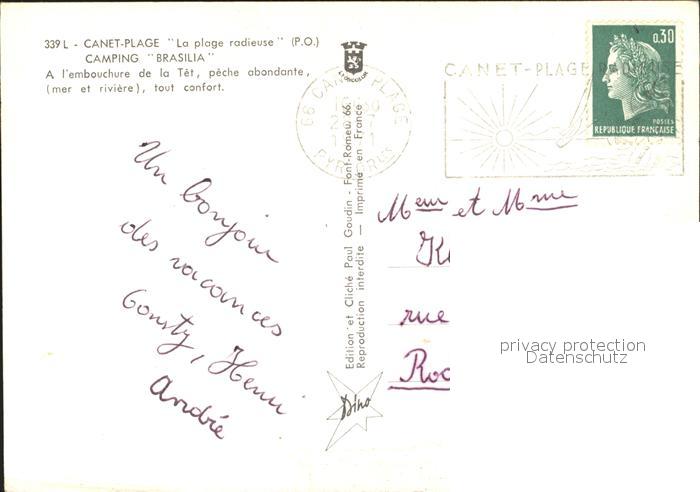 339 L - CANET-PLAGE "La plage radieuse" (P.O.)
CAMPING "BRASILIA"
A l'embouchure de la Têt, pêche abondante,
(mer et rivière), tout confort.
Un bonjour
des vacances
Henri
André
Edition et Cliché Paul Goudin - Font-Romeu, 66.
Reproduction interdite — Imprimé en France
Dino
66 CANET PLAGE
CANET-PLAGE
0,30
POSTES
REPUBLIQUE FRANÇAISE
Meur et Mme
rue
privacy protection
Datenschutz